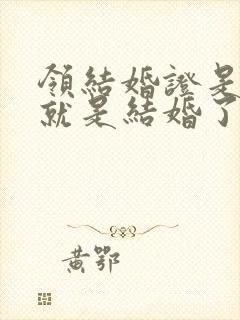 領結婚證是
就是結婚了
黃鄂